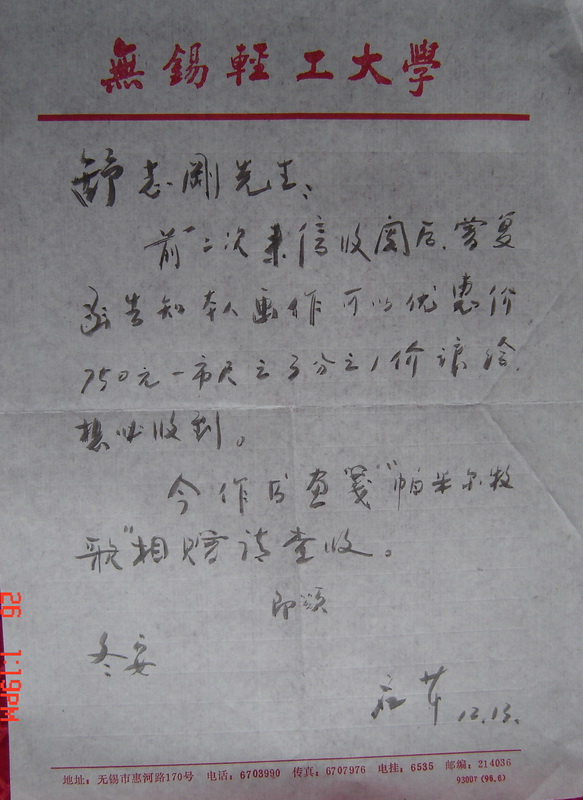 無錫輕工大學
舒志刚先生：
前二次来信收阅后，曾复
函告知本人画作可以优惠价
750元一市尺之3分之1价让给，
想必收到。
今作书画笺“帕米尔牧
歌”相赠请查收。
即颂
冬安
12.15.
地址：无锡市惠河路170号 电话：6703990 传真：6707976 电挂：6535 邮编：214036
93007（96.6）
26 1:19PM